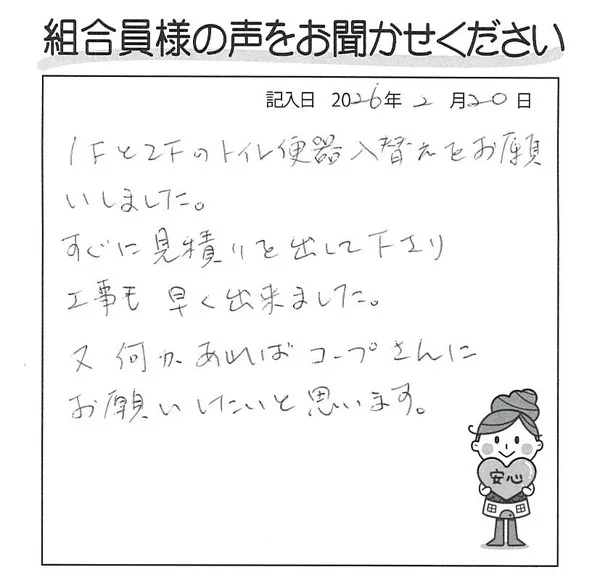 組合員様の声をお聞かせください
記入日 2026年 2 月20日
1Fと2Fのトイレ便器入替えをお願
いしました。
すぐに見積りを出して下さり
工事も早く出来ました。
又何かあればコープさんに
お願いしたいと思います。
安心